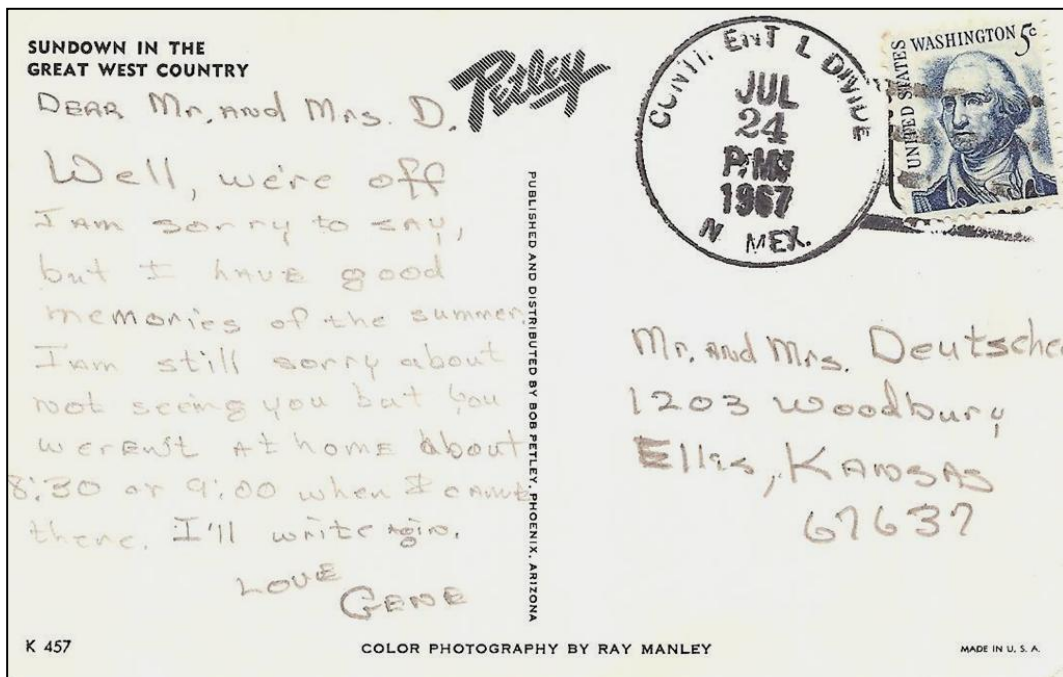 SUNDOWN IN THE
GREAT WEST COUNTRY
Petley
DEAR Mr. AND Mrs. D.
Well, we're off
I am sorry to say,
but I have good
memories of the summer.
I am still sorry about
not seeing you but you
weren't at home about
8:30 or 9:00 when I came
there. I'll write agin.
LOVE
GENE
PUBLISHED AND DISTRIBUTED BY BOB PETLEY, PHOENIX, ARIZONA
CONTI ENT L DIVIDE
JUL
24
PM
1967
N MEX.
UNITED STATES
WASHINGTON 5c
Mr. AND Mrs. Deutsche
1203 Woodbury
Ellis, KANSAS
67637
K 457
COLOR PHOTOGRAPHY BY RAY MANLEY
MADE IN U. S. A.